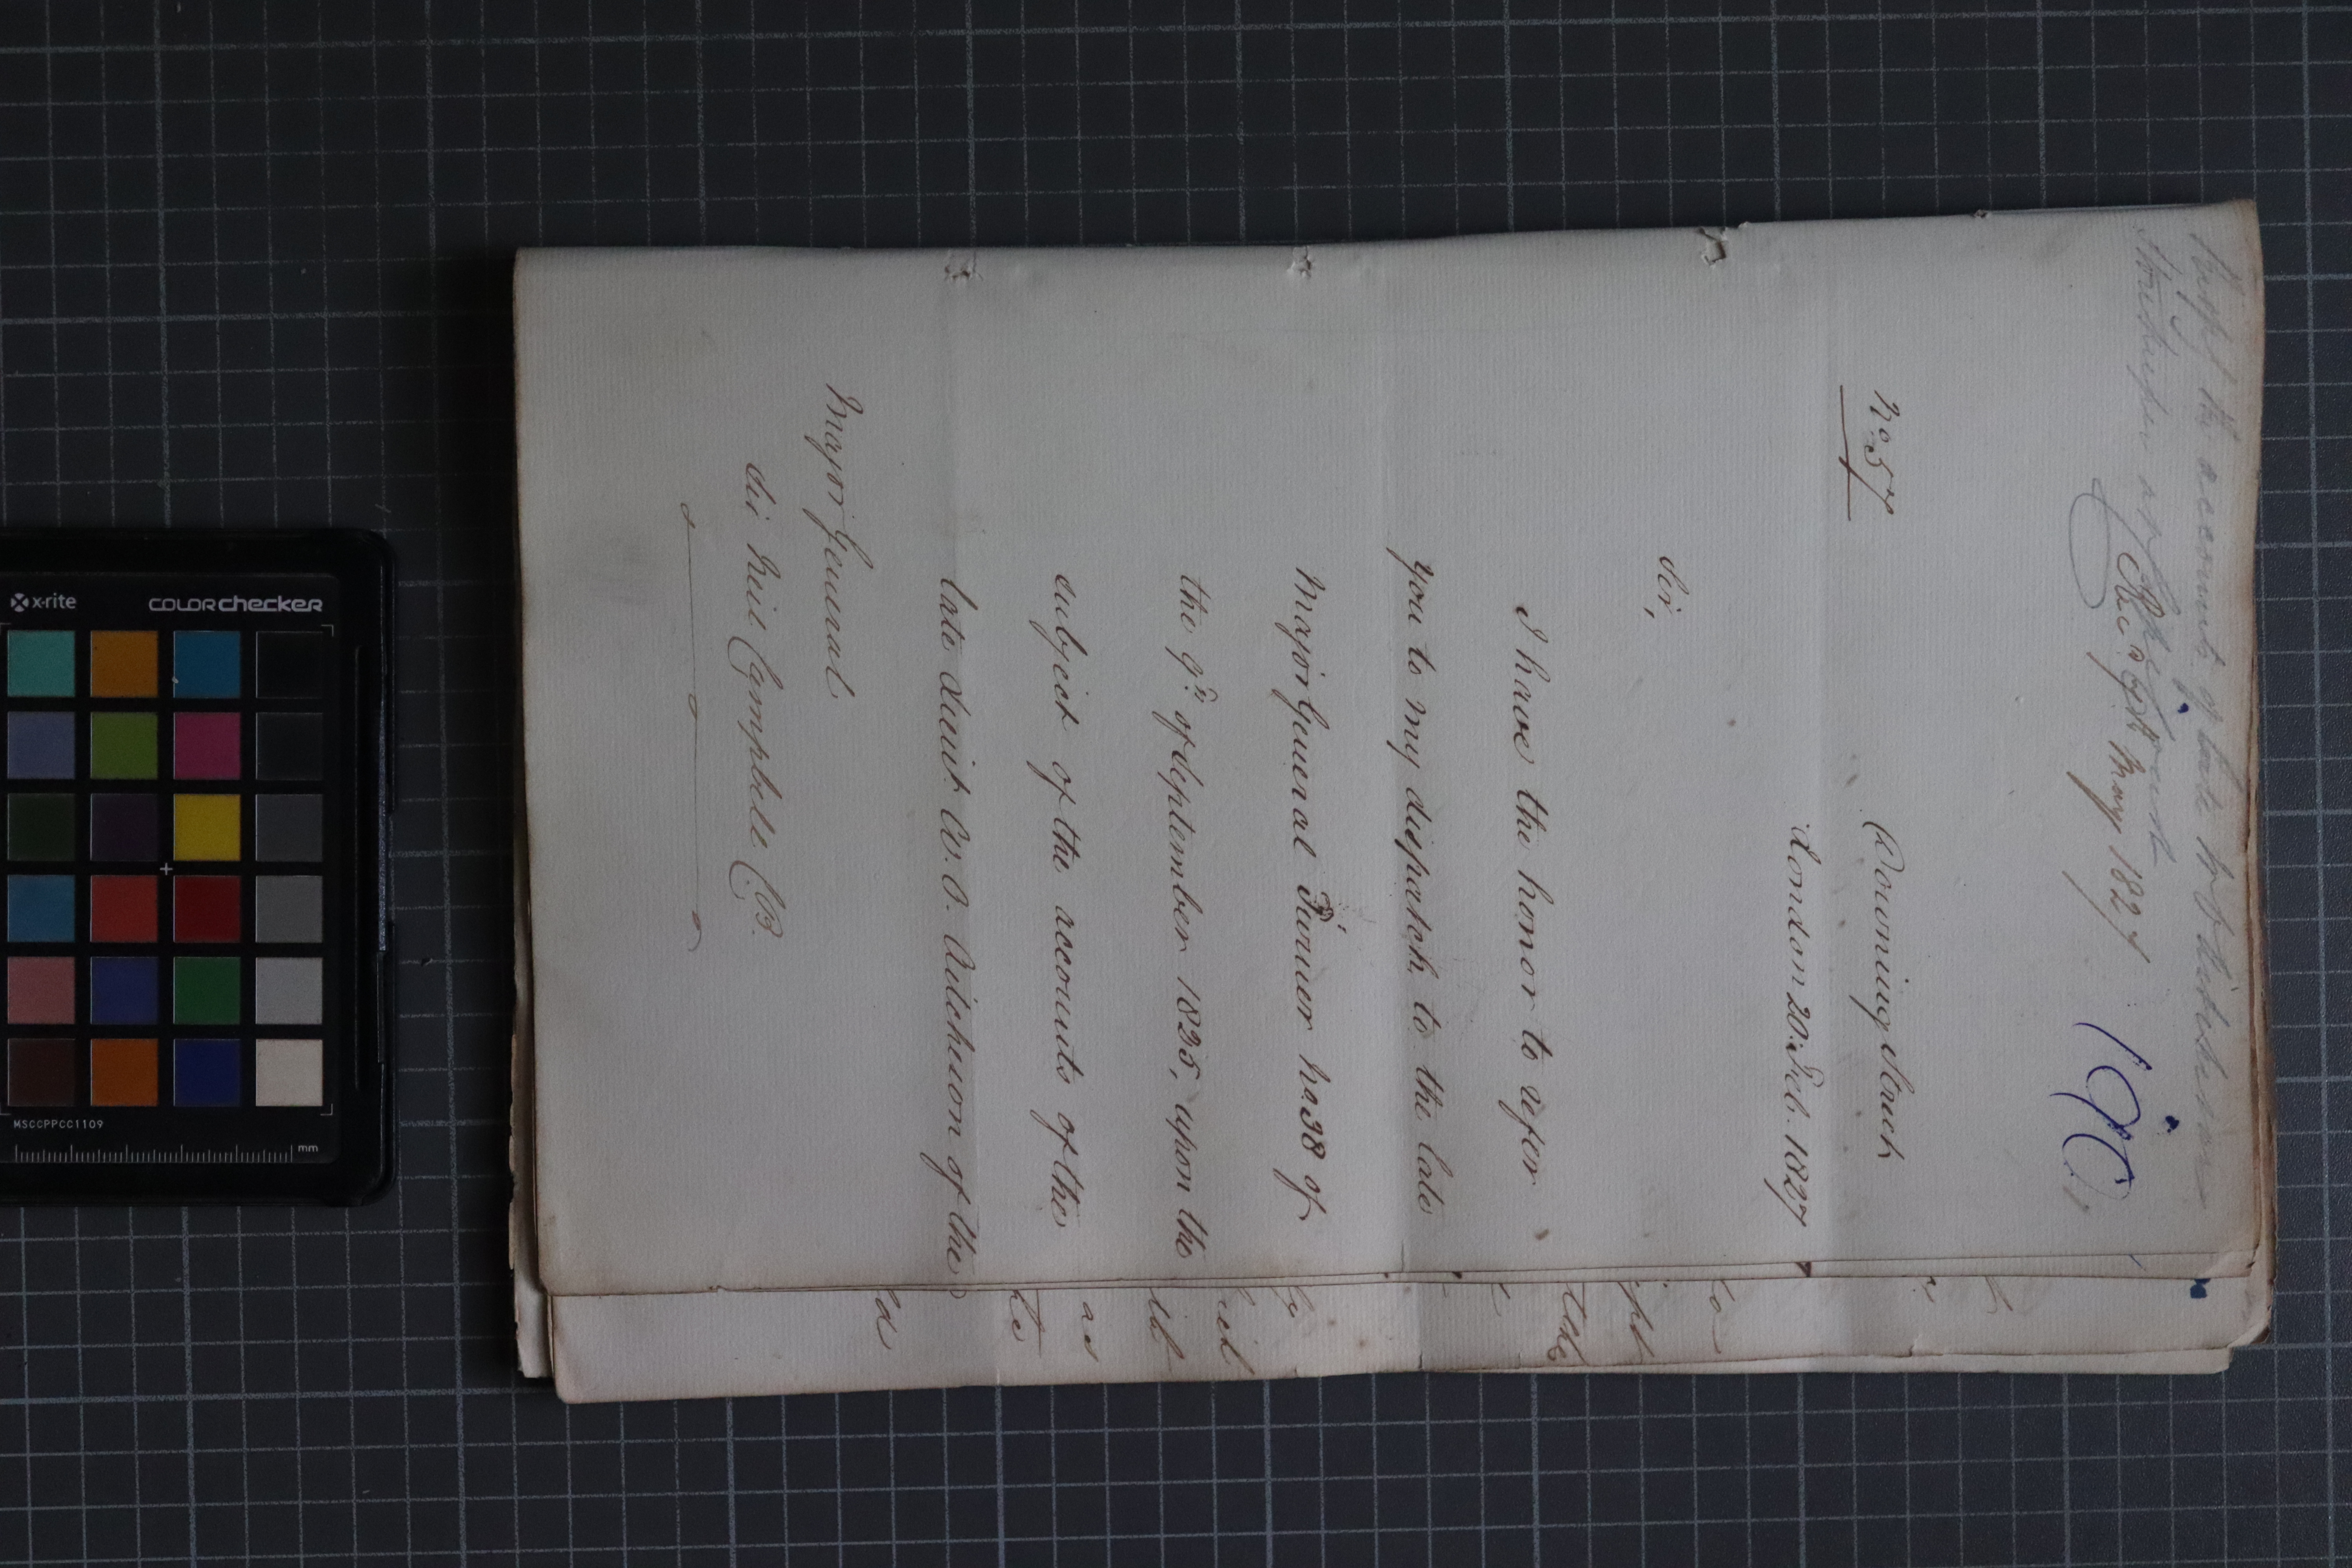 Resp.g the accounts of late
Storekeeper
Rec.d May 1827
190
No. 57
Downing Street
London 20. Feb. 1827
Sir,
I have the honor to refer
you to my dispatch to the late
Major General Turner No. 38 of
the 9th of September 1825, upon the
subject of the accounts of the
late Lieut. W. S. Aitchison of the
Major General
Sir Neil Campbell C.B.
the
as
x-rite
COLORchecker
MSCCPPCC1109
mm